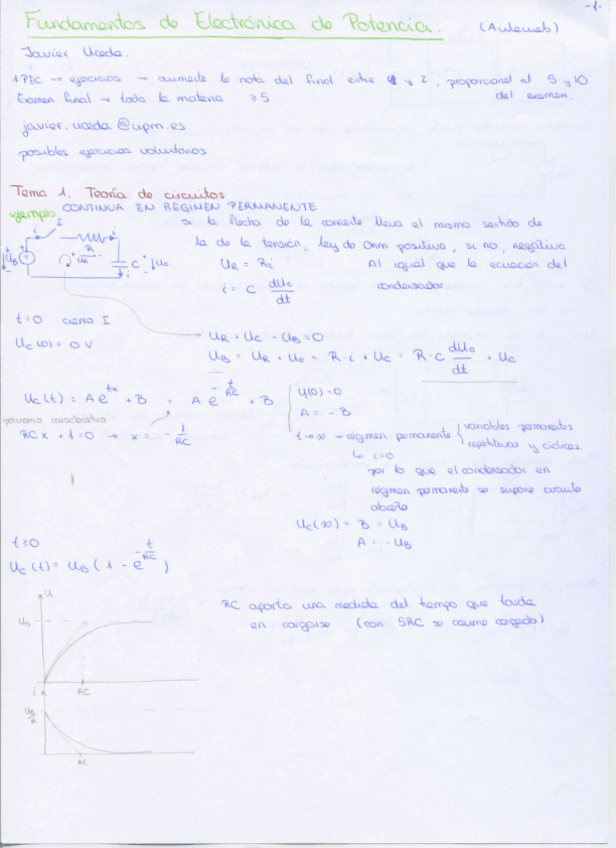 -1-
Fundamentos de Electrónica de Potencia. (Aulaweb)
Javier Uceda.
1 PEC → ejercicios → aumente la nota del final entre 1 y 2, proporcional al 5 y 10
Examen final → toda la materia ≥5 del examen.
javier.uceda@upm.es
posibles ejercicios voluntarios
Tema 1. Teoría de circuitos
ejemplo CONTINUA EN RÉGIMEN PERMANENTE
I
i R i
U_B U_R C U_C
i
Si la flecha de la corriente lleva el mismo sentido de
la de la tensión, ley de Ohm positiva, si no, negativa
U_R = Ri Al igual que la ecuación del
i = C dU_C/dt condensador.
t=0 cierro I
U_C(0) = 0 V
U_R + U_C - U_B = 0
U_B = U_R + U_C = R·i + U_C = R·C dU_C/dt + U_C
U_C(t) = A e^{tx} + B = A e^{-t/RC} + B
U(0) = 0
A = -B
polinomio característico
RCx + 1 = 0 → x = -1/RC
t→∞ → régimen permanente { variables permanentes
repetitivas y cíclicas.
↳ i=0
por lo que el condensador en
régimen permanente se supone circuito
abierto
U_C(∞) = B = U_B
A = -U_B
t≥0
U_C(t) = U_B (1 - e^{-t/RC})
U
U_B
RC
RC aporta una medida del tiempo que tarda
en cargarse (con 5RC se asume cargado)
i
U_B/R
RC